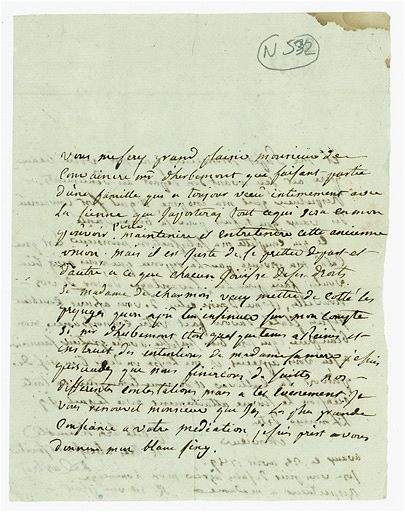 N 532
vous me ferez grand plaisir monsieur de
Convaincre mr d'herbemont que faisant partie
d'une famille qui a toujour vecu intimement avec
la sienne que j'aporterai tout ce qui sera en mon
pouvoir pour maintenir et entretenir cette ancienne
union, mais il est juste de se preter de part et
d'autre a ce que chacun jouisse de ses droits
Si madame de charmois veux mettre de Cotté les
prejugés qu'on a pu lui insinuer sur mon Compte
Si mr d'herbemont
instruit des intentions de madame sa mere je suis
persuadé que nous finirons de suitte nos
differentes Contestations mais a les
vous renouvel monsieur que j'ai la plus grande
Confiance a votre mediation je suis prest a vous
donner mon blanc sing.